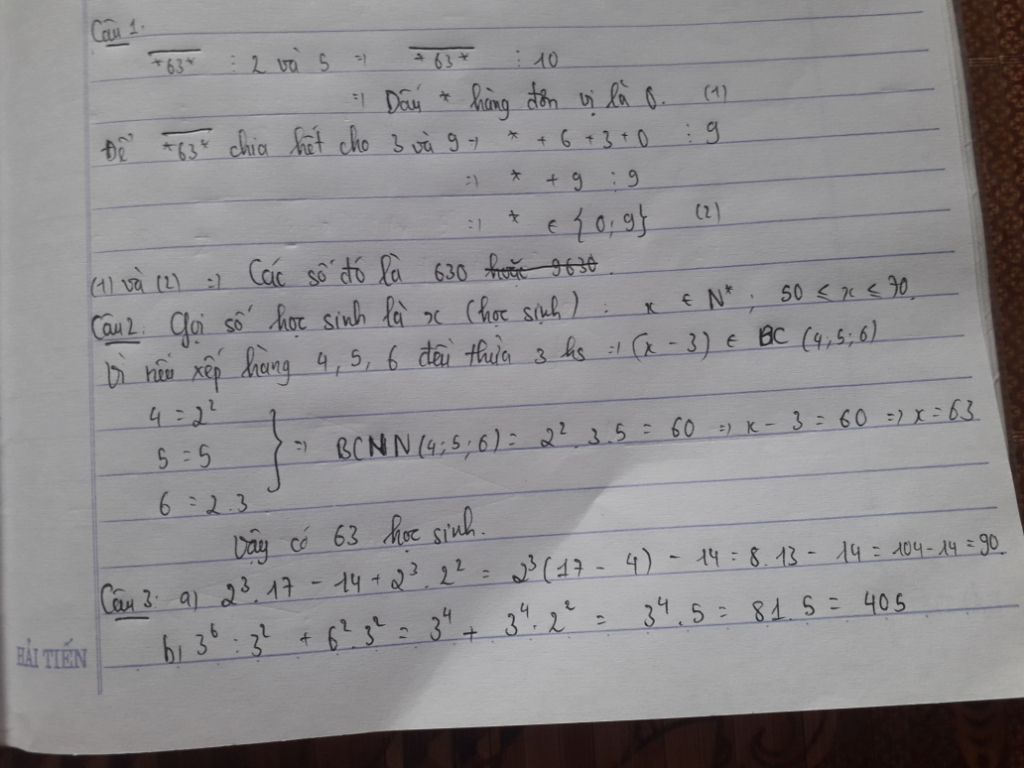 Câu 1.
*63* ⋮ 2 và 5 => *63* ⋮ 10
=> Dấu * hàng đơn vị là 0. (1)
Để *63* chia hết cho 3 và 9 => * + 6 + 3 + 0 ⋮ 9
=> * + 9 ⋮ 9
=> * ∈ {0; 9} (2)
(1) và (2) => Các số đó là 630 hoặc 9630.
Câu 2. Gọi số học sinh là x (học sinh) : x ∈ N* ; 50 ≤ x ≤ 70.
Vì nếu xếp hàng 4, 5, 6 đều thừa 3 hs => (x - 3) ∈ BC (4; 5; 6)
4 = 2²
5 = 5
6 = 2.3
} => BCNN (4; 5; 6) = 2² . 3 . 5 = 60 => x - 3 = 60 => x = 63
Vậy có 63 học sinh.
Câu 3: a) 2³. 17 - 14 + 2³. 2² = 2³ (17 - 4) - 14 = 8. 13 - 14 = 104 - 14 = 90.
b, 3⁶ : 3² + 6². 3² = 3⁴ + 3⁴. 2² = 3⁴. 5 = 81. 5 = 405
HẢI TIẾN